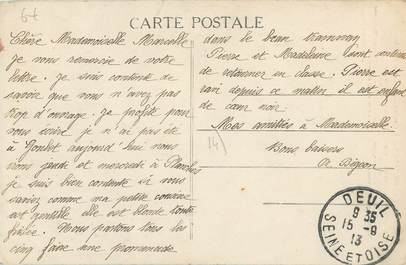 6t
CARTE POSTALE
Chère Mademoiselle Marcelle
je vous remercie de votre
lettre. je suis contente de
savoir que vous n'avez pas
trop d'ouvrage. je profite pour
vous écrire je n'ai pas été
à aujourd'hui nous
vous jeudi et mercredi à
je suis bien contente si vous
saviez comme ma petite cousine
est gentille elle est blonde toute
frisée. Nous partons tous les
cinq faire une promenade
dans le beau tramway
Pierre et Madeleine sont
de retourner en classe. Pierre est
ravi depuis ce matin il est enfant
de cœur noir.
Mes amitiés à Mademoiselle.
Bons baisers
14)
DEUIL
9 35
15 -9
13
SEINE ET OISE